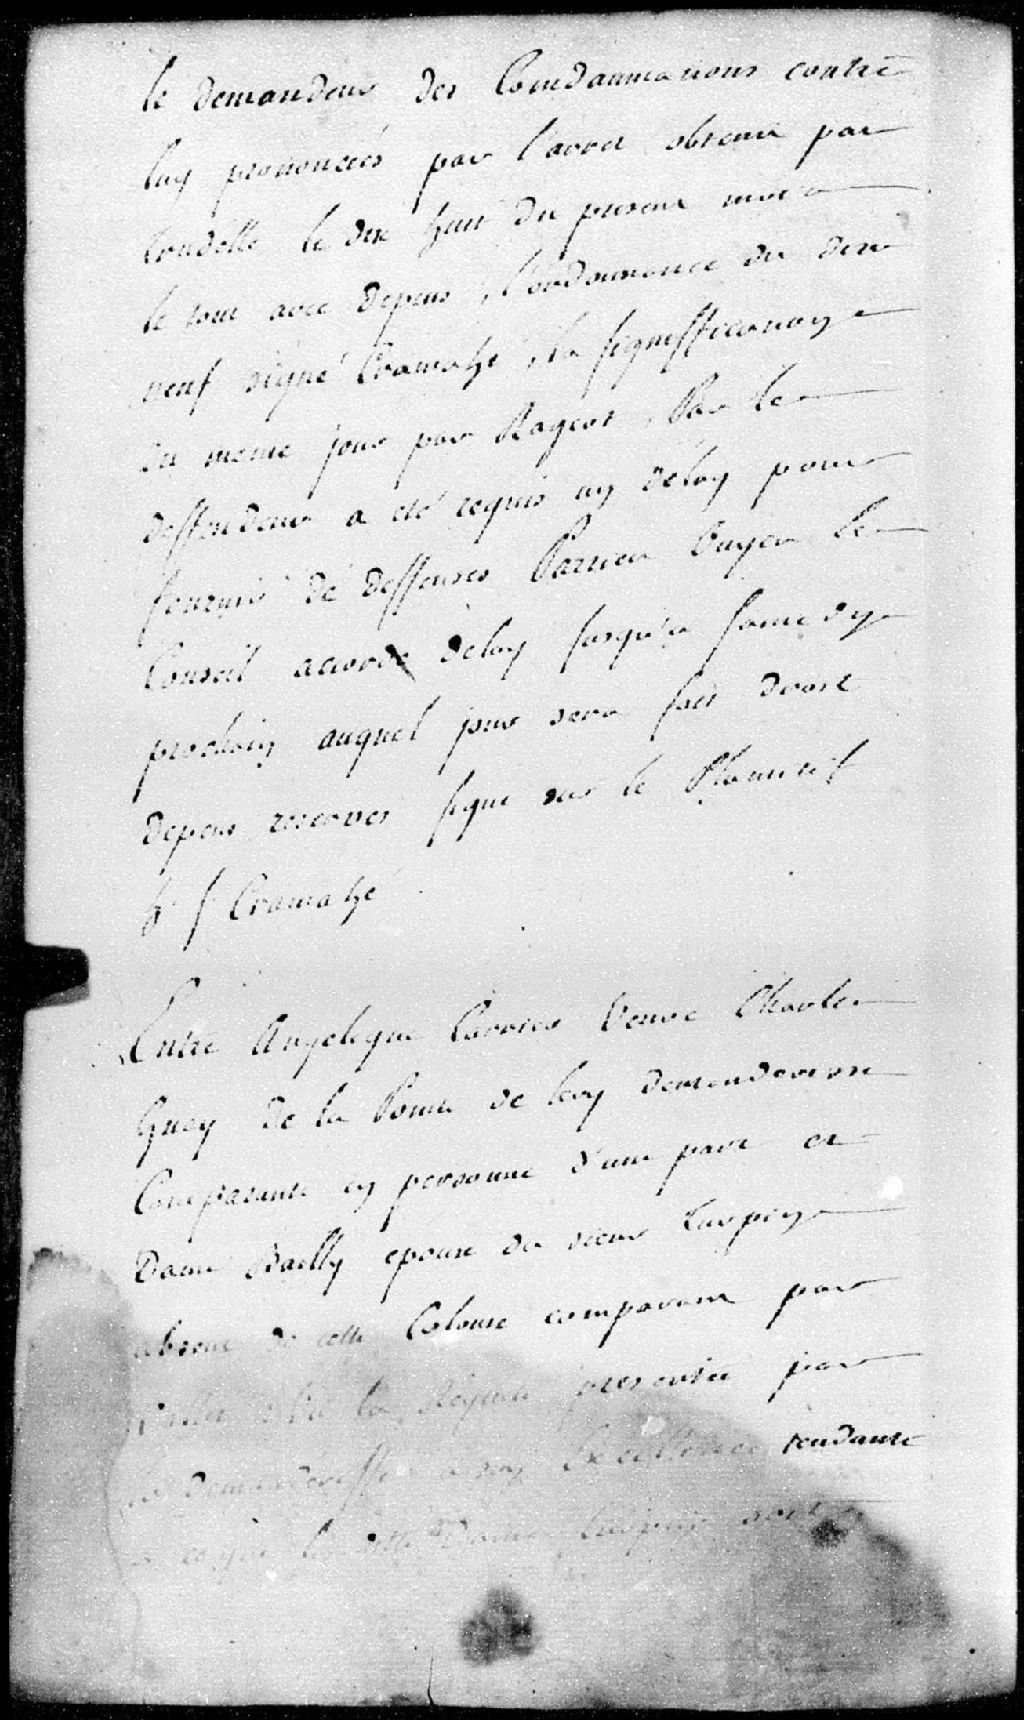 le demandeur des Comdamnations contre
luy prononcées par l'arret obtenu par
le dix huit du present mois
le tout avec depens, l'ordonnance du dix
neuf signé Cramahé, la signiffication
du meme jour par Rageot, Par le
deffendeur a eté requis un delay pour
fournir de deffenses Parties ouyes le
Conseil accorde delay jusqu'a samedy
prochain auquel jour sera fait droit
depens reservés signé sur le Plumitif
h. f. Cramahé
Entre Angelique Carrier Veuve Charles
Guay de la Pointe de levy demanderesse
Comparante en personne d'une part et
Dame Bailly epouse du sieur Curpin
absent de cette Colonie comparant par
la Requete presentée par
la demanderesse a son Excellence tendante
a ce que la ditte Dame soit